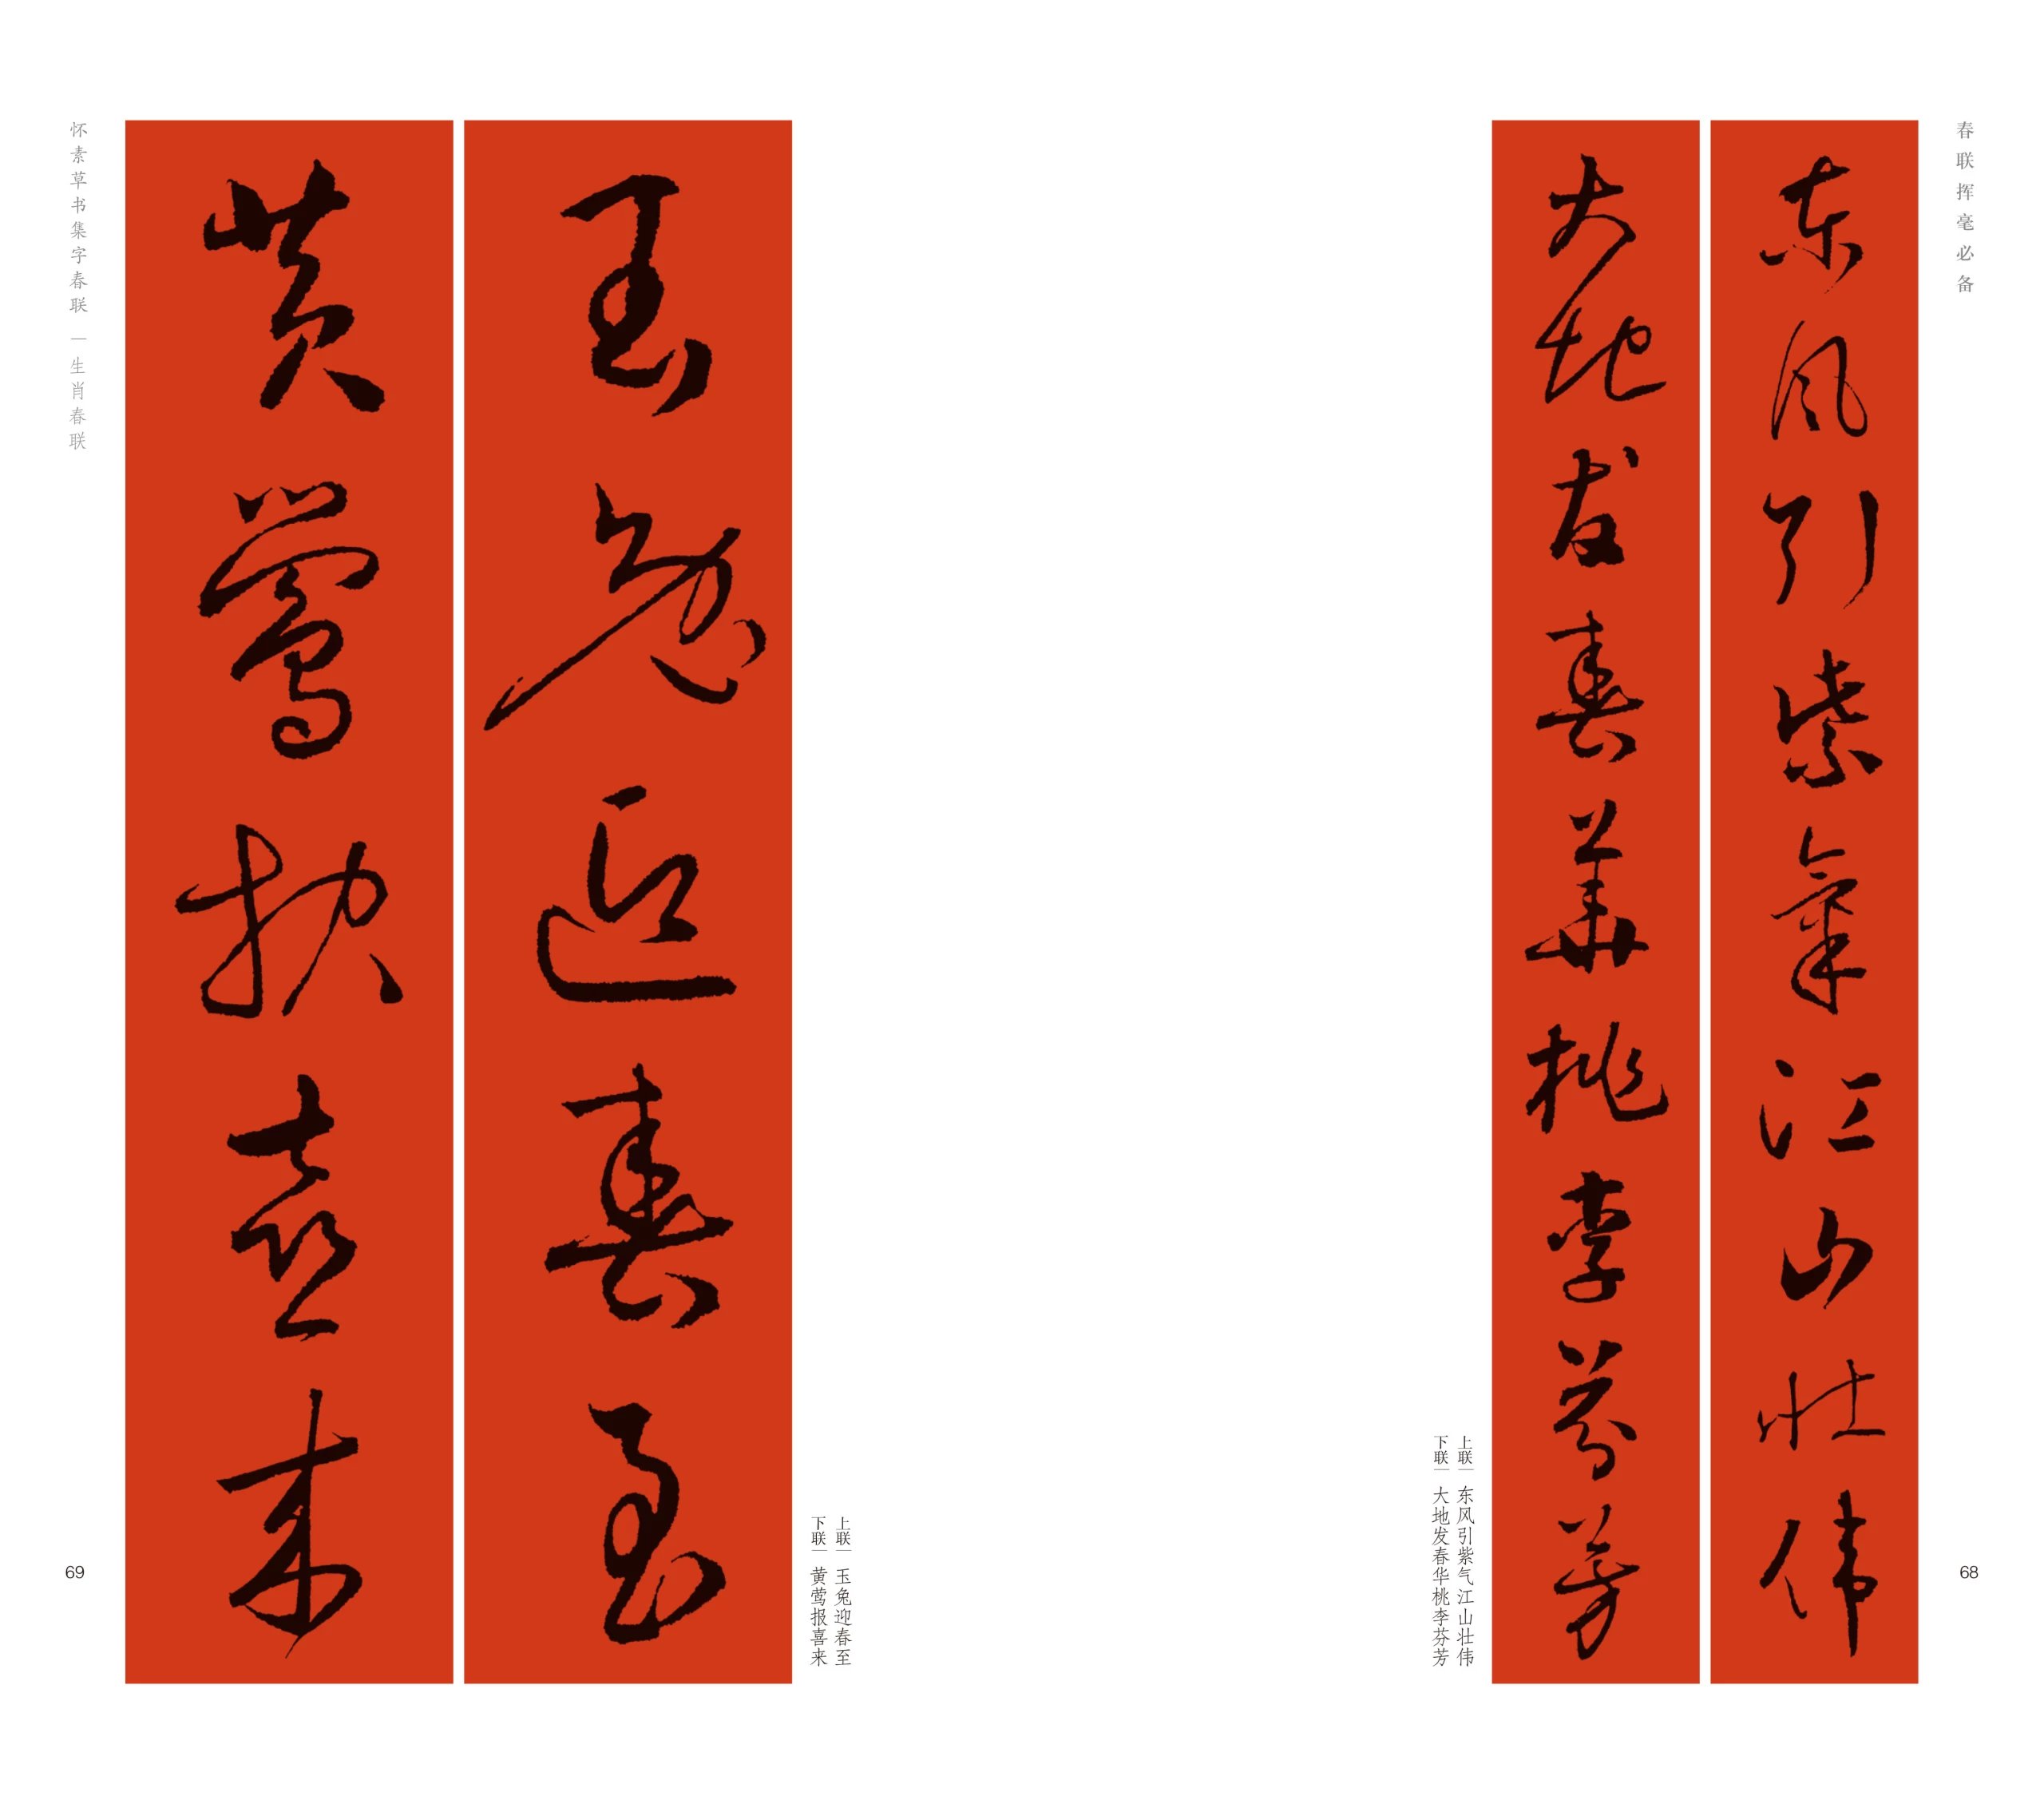 春联挥毫必备
东风引紫气江山壮伟
大地发春华桃李芬芳
上联｜东风引紫气江山壮伟
下联｜大地发春华桃李芬芳
68
上联｜玉兔迎春至
下联｜黄莺报喜来
玉兔迎春至
黄莺报喜来
怀素草书集字春联｜生肖春联
69